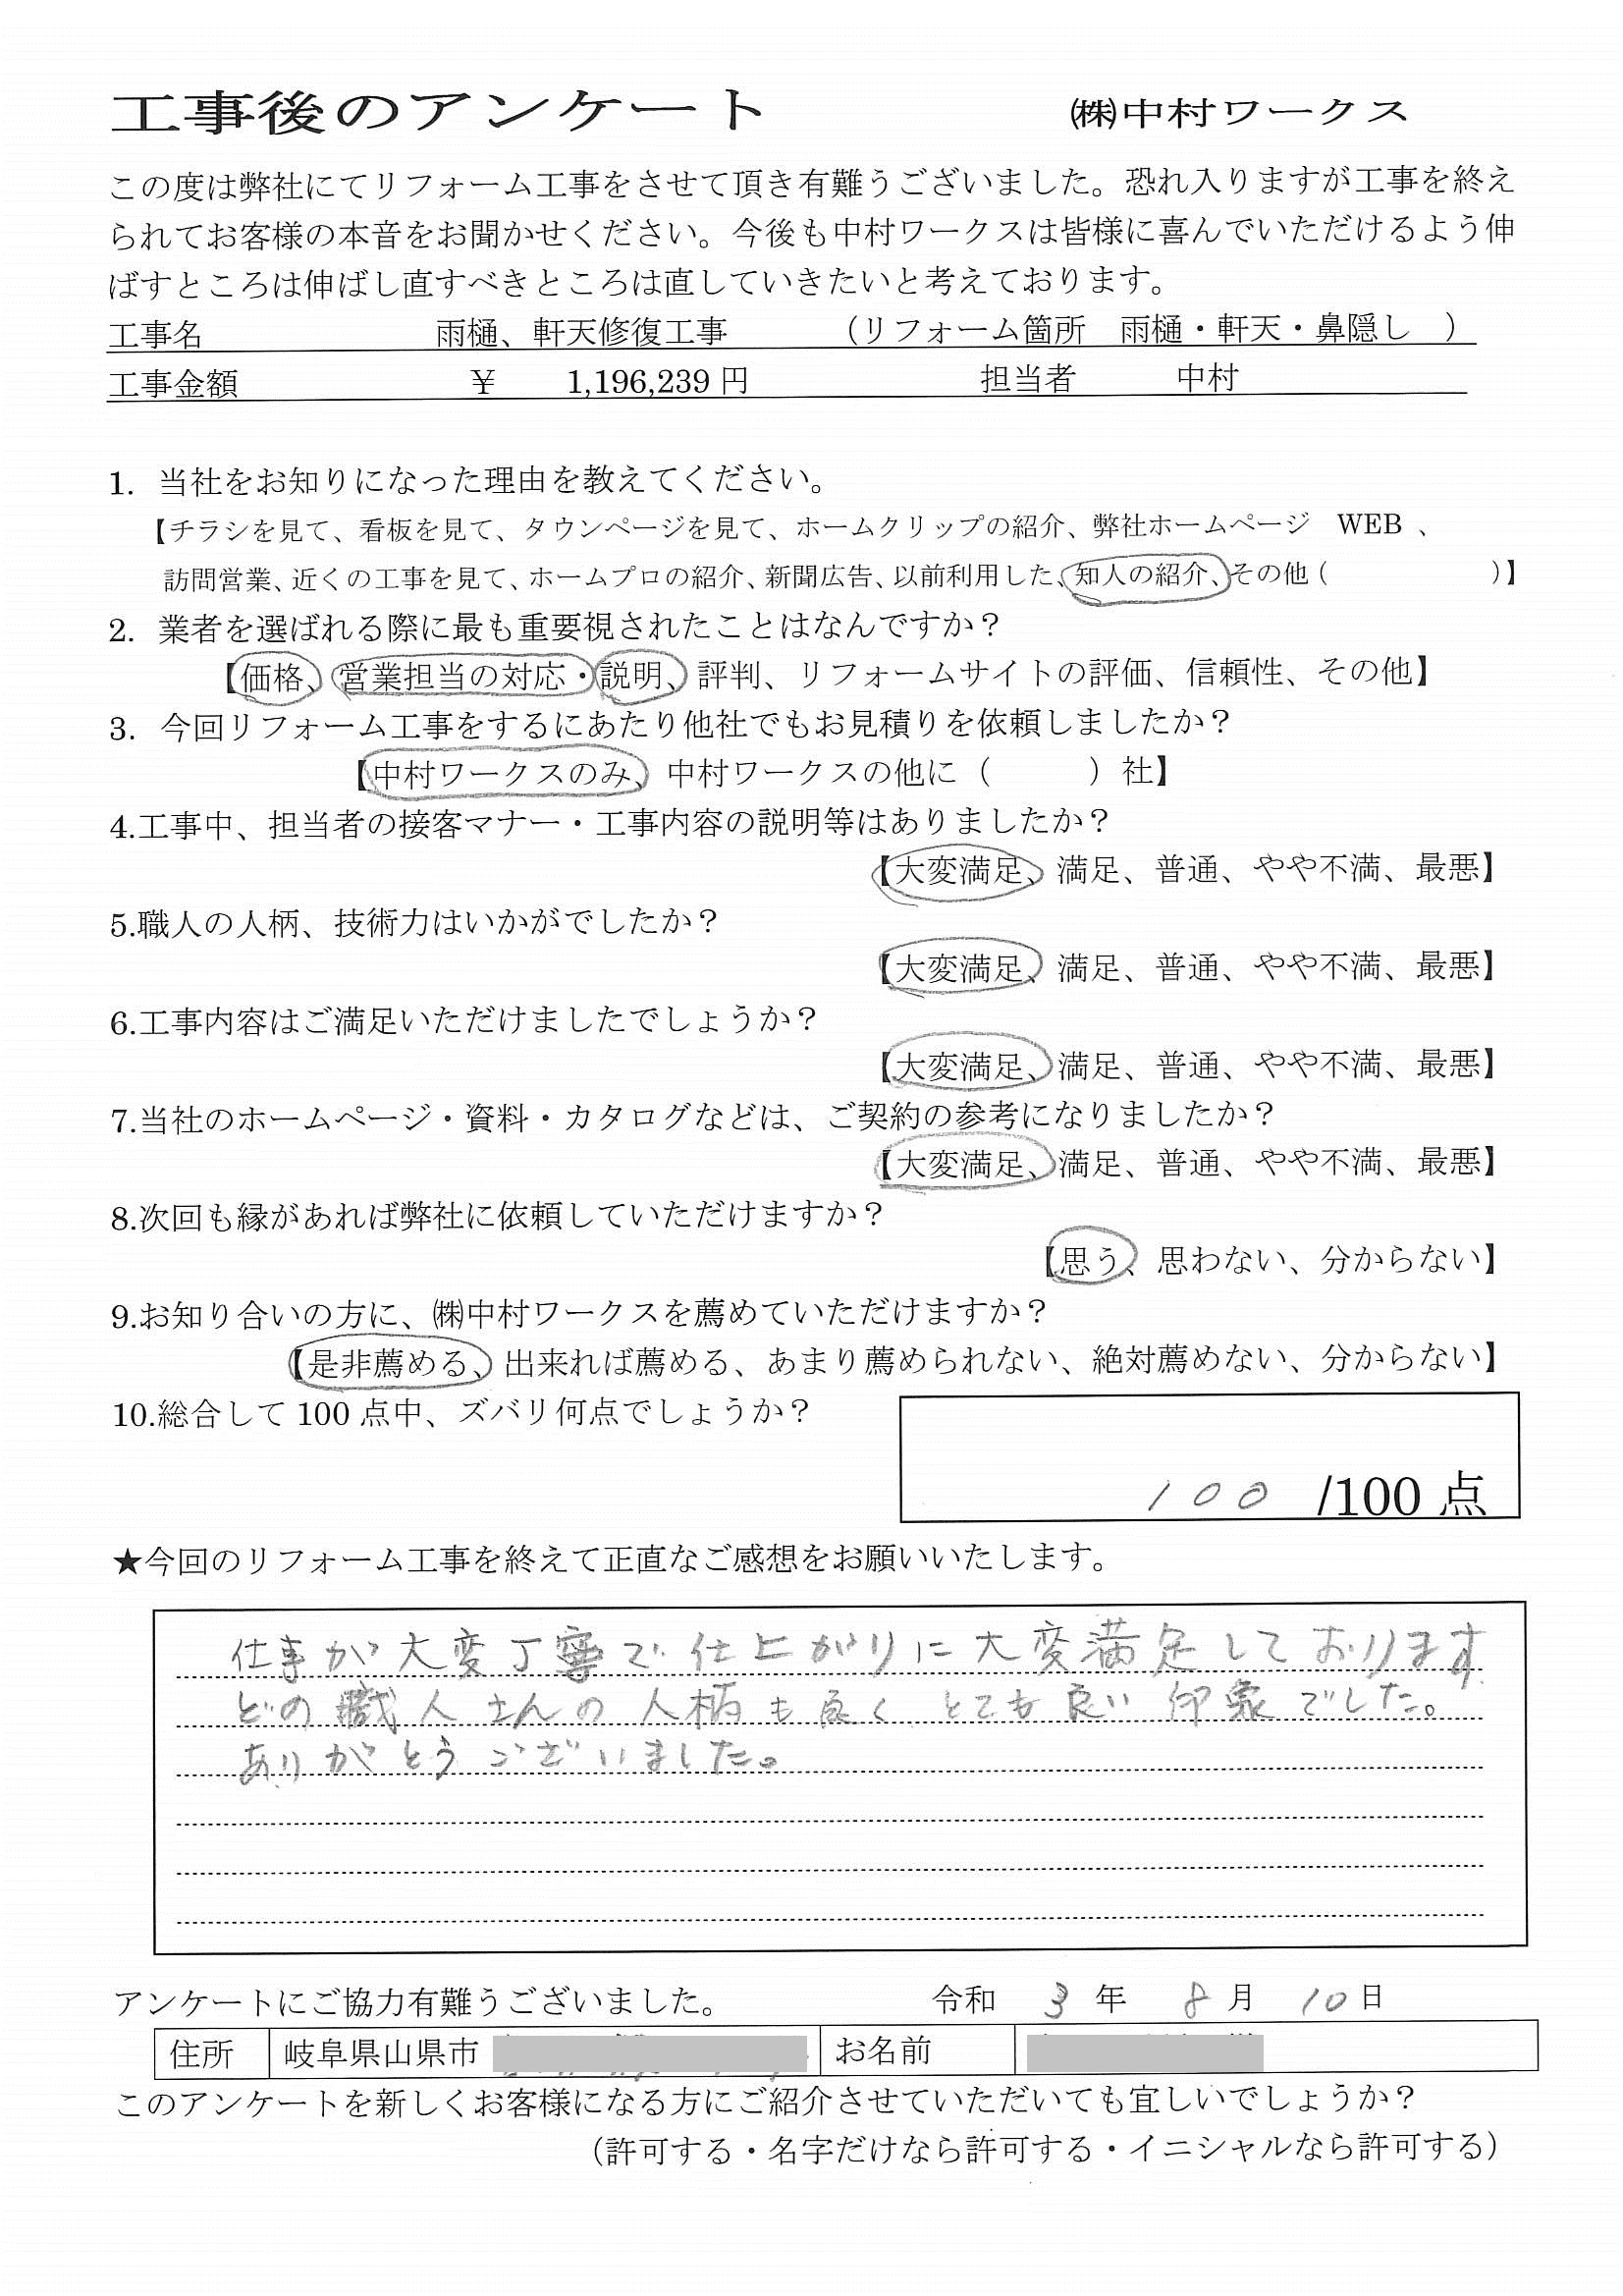 工事後のアンケート ㈱中村ワークス
この度は弊社にてリフォーム工事をさせて頂き有難うございました。恐れ入りますが工事を終え
られてお客様の本音をお聞かせください。今後も中村ワークスは皆様に喜んでいただけるよう伸
ばすところは伸ばし直すべきところは直していきたいと考えております。
工事名 雨樋、軒天修復工事 （リフォーム箇所 雨樋・軒天・鼻隠し ）
工事金額 ￥ 1,196,239 円 担当者 中村
1. 当社をお知りになった理由を教えてください。
【チラシを見て、看板を見て、タウンページを見て、ホームクリップの紹介、弊社ホームページ WEB 、
訪問営業、近くの工事を見て、ホームプロの紹介、新聞広告、以前利用した、知人の紹介、その他（ ）】
2. 業者を選ばれる際に最も重要視されたことはなんですか？
【価格、営業担当の対応・説明、評判、リフォームサイトの評価、信頼性、その他】
3. 今回リフォーム工事をするにあたり他社でもお見積りを依頼しましたか？
【中村ワークスのみ、中村ワークスの他に（ ）社】
4.工事中、担当者の接客マナー・工事内容の説明等はありましたか？
【大変満足、満足、普通、やや不満、最悪】
5.職人の人柄、技術力はいかがでしたか？
【大変満足、満足、普通、やや不満、最悪】
6.工事内容はご満足いただけましたでしょうか？
【大変満足、満足、普通、やや不満、最悪】
7.当社のホームページ・資料・カタログなどは、ご契約の参考になりましたか？
【大変満足、満足、普通、やや不満、最悪】
8.次回も縁があれば弊社に依頼していただけますか？
【思う、思わない、分からない】
9.お知り合いの方に、㈱中村ワークスを薦めていただけますか？
【是非薦める、出来れば薦める、あまり薦められない、絶対薦めない、分からない】
10.総合して 100 点中、ズバリ何点でしょうか？
100 /100 点
★今回のリフォーム工事を終えて正直なご感想をお願いいたします。
仕事が大変丁寧で仕上がりに大変満足しております
どの職人さんの人柄も良くとても良い印象でした。
ありがとうございました。
アンケートにご協力有難うございました。 令和 3 年 8 月 10 日
住所 岐阜県山県市 お名前
このアンケートを新しくお客様になる方にご紹介させていただいても宜しいでしょうか？
（許可する・名字だけなら許可する・イニシャルなら許可する）